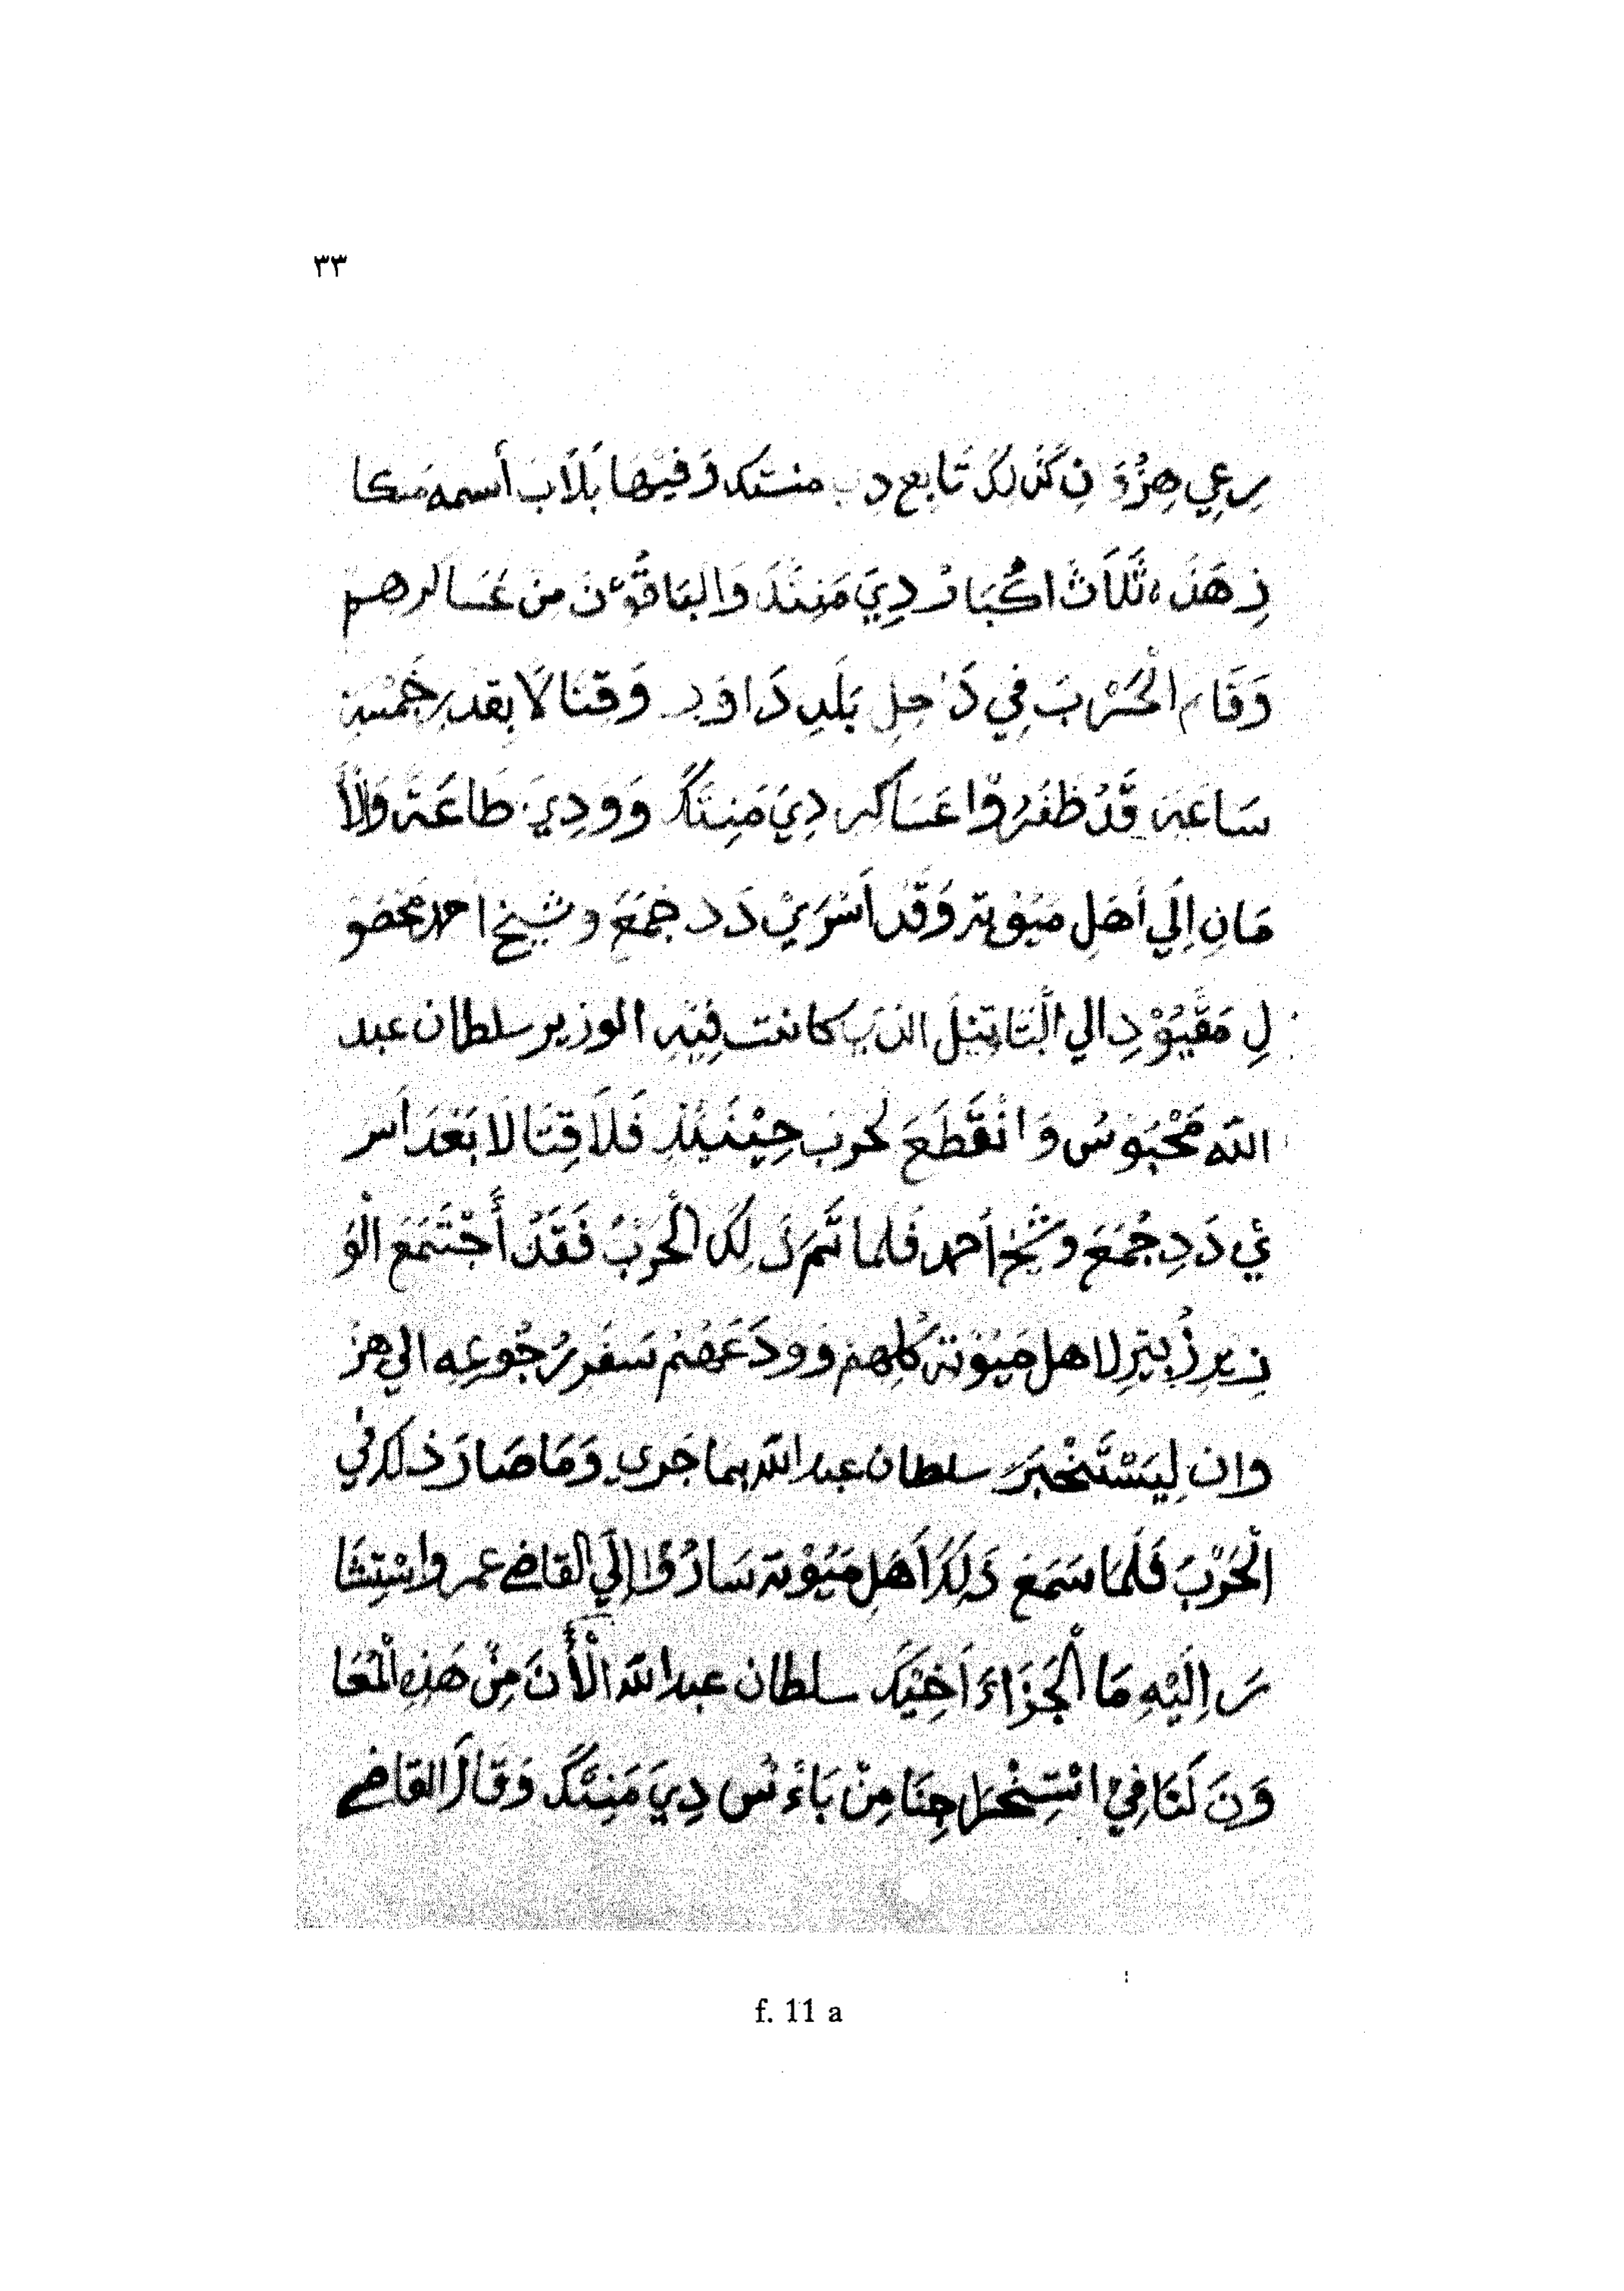 ٣٣
رعي هِزُوَ نِ كَذَلِكَ تَابِع دِي منتك وَفيْهَا بَلَاب أَسمه مَكا
ذِ هَذه ثَّلَاثْ اكُبَارْ دِيَ مَنِنْدَ وَالبَاقُوْنَ مِنْ عَسَاكرهم
وَقَام الْحَرْبَ فِي دَاخِلِ بَلَدِ دَاوَدِ وَقتَالَا بِقدرِ خَمْسَةِ
سَاعَة قَدْ ظَفَرُوْا عَسَاكر دِيَ مَنِتَكَ وَوَدِيَ طَاعَة وَالْأَ
مَانِ اِلَي أَهَل مَيُوْتة وَقَد اَسْرَيْ دَدِ جُمَعَ وشيخ احمد مَحْضو
لِ مَقْيُوْدِ الي الْبَتَاتِيْل الذي كانت فِيْهِ الوزير سلطان عبد
الله مَحْبُوسُ وَانْقَطَعَ لحرب حِيْنَئِذِ فَلَا قِتَالَا بَعْدَ اَسر
ئِي دَدِ جُمَعَ وَشْيخ أَحمد فَلما تَّم ذَلِكَ الْحَرْبُ فَقَدْ أَجْتَمَعَ الْوَ
زِيرِ زُبَيْرِ لاهل مَيُوْتة كُلِهِمْ وَوَدَعَهُمْ سَفَرِ رُجُوْعِه الي هِزُ
وان لِيَسْتَخْبَرَ سلطان عبد الله بِما جَرى وَمَا صَارَ ذلك في
الْحَرْبَ فَلَمَا سَمَعَ ذَلِكَ اَهَل مَيُوْتة سَارُوْا اِلَي القاضي عمر وَاسْتِشَا
رَ اِلَيْهِ مَا الْجَزَاءَ اَخِيْكَ سلطان عبد الله الْأَنَ مِنْ هَذِهِ الْمُعَا
وَنَ لَنَا فِيْ اسْتِخْرَاجِنَا مِنْ بَاءْسْ دِيَ مَنِتَكَ وَقَالَ القاضي
f. 11 a